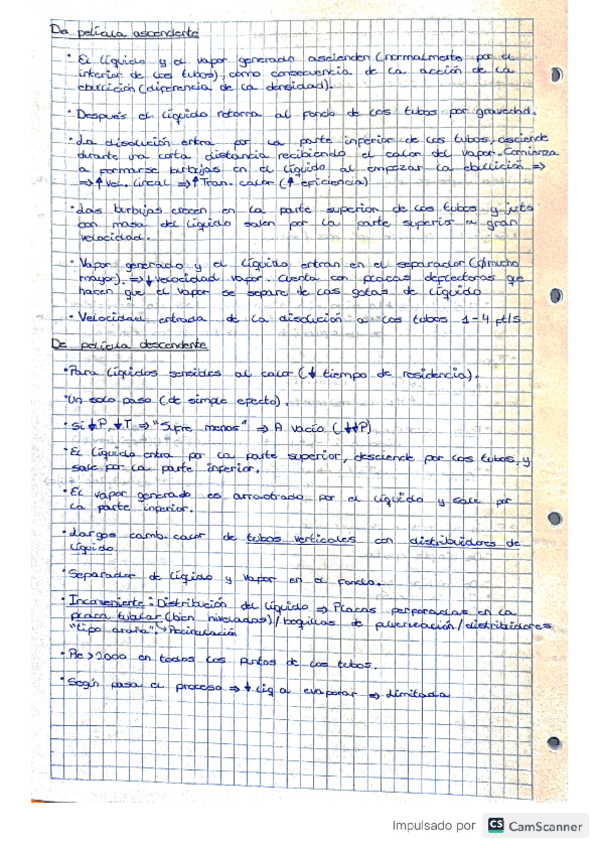 De película ascendente
· El líquido y el vapor generado ascienden (normalmente por el
interior de los tubos), como consecuencia de la acción de la
ebullición (diferencia de la densidad).
· Después el líquido retorna al fondo de los tubos por gravedad.
· La disolución entra por la parte inferior de los tubos, asciende
durante una corta distancia recibiendo el calor del vapor. Comienza
a formarse burbujas en el líquido al empezar la ebullición ⇒
⇒ ↑ Vel. lineal ⇒ ↑ Tran. calor (↑ eficiencia)
· Las burbujas crecen en la parte superior de los tubos y junto
con masa del líquido salen por la parte superior a gran
velocidad.
· Vapor generado y el líquido entran en el separador (ϕ mucho
mayor). ⇒ ↓ velocidad vapor. Cuenta con placas deflectoras que
hacen que el vapor se separe de las gotas de líquido
· Velocidad entrada de la disolución a los tubos 1-4 ft/s
De película descendente
· Para líquidos sensibles al calor (↓ tiempo de residencia).
· Un solo paso (de simple efecto).
· Si ↓P, ↓T ⇒ "Sufre menos" ⇒ A vacío (↓↓P)
· El líquido entra por la parte superior, desciende por los tubos, y
sale por la parte inferior.
· El vapor generado es arrastrado por el líquido y sale por
la parte inferior.
· Largos camb. calor de tubos verticales con distribuidores de
líquido
· Separador de líquido y vapor en el fondo.
· Inconveniente: Distribución del líquido ⇒ Placas perforadas en la
placa tubular (bien niveladas) / boquillas de pulverización / distribuidores
"tipo araña". → Recirculación
· Re > 2000 en todos los puntos de los tubos.
· Según pasa el proceso ⇒ ↓ líq a evaporar ⇒ Limitada
Impulsado por CS CamScanner